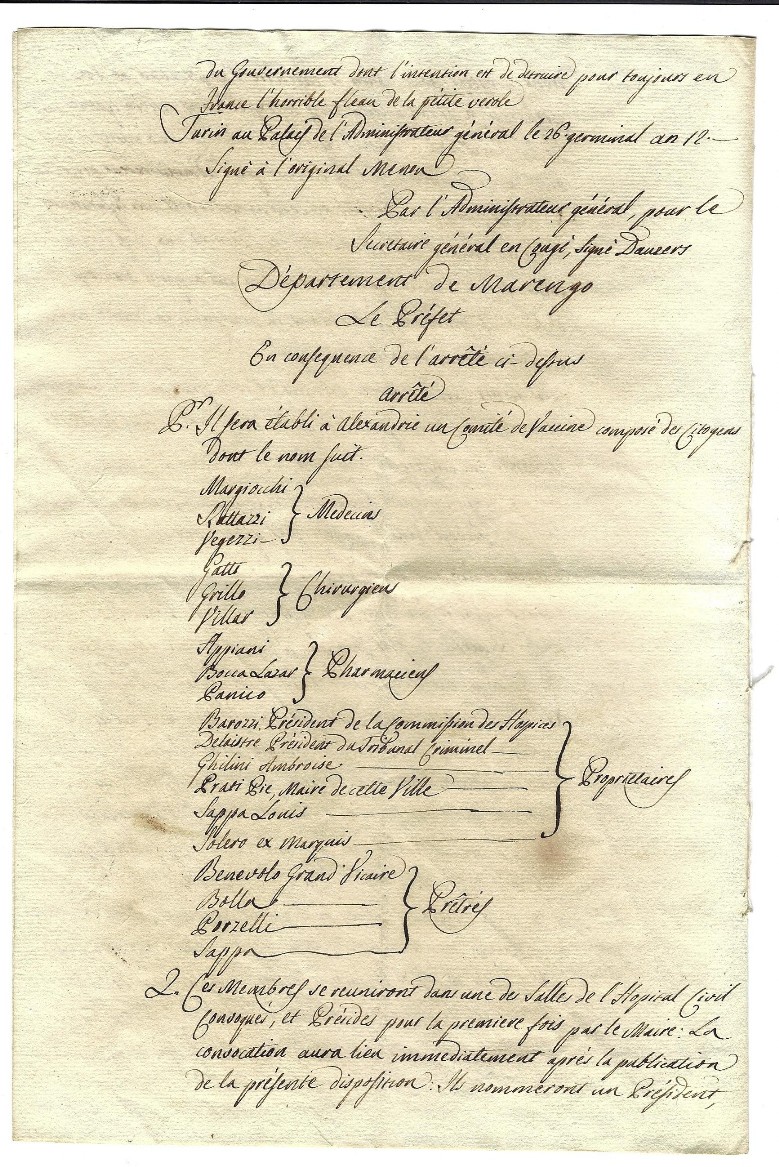 du Gouvernement dont l'intention est de detruire pour toujours en
france l'horrible fleau de la pétite verole
Turin au Palais de l'Administrateur général le 26 germinal an 12.
Signé à l'original Menou
Par l'Administrateur général, pour le
Secretaire général en Congé, signé Dauzers
Département de Marengo
Le Préfet
En consequence de l'arrêté ci-dessus
arrêté
Pr. Il sera établi à Alexandrie un Comité de Vaccine composé des Citoyens
dont le nom suit.
Margiocchi
Rattazzi } Medecins
Vegezzi
Gatti
Grillo } Chirurgiens
Villar
Appiani
Bocca Lazar } Pharmaciens
Panico
Barozzi Président de la Commission des Hospices
Delaistre Président du Tribunal Criminel
Ghilini Ambroise
Prati Pie, Maire de cette Ville } Propriétaires
Sappa Louis
Solero ex Marquis
Benevolo Grand Vicaire
Bolla } Prêtres
Porzelli
Sappa
2. Ces Membres se reuniront dans une des Salles de l'Hopital Civil
Convoqués, et Présidés pour la premiere fois par le Maire: La
convocation aura lieu immediatement aprés la publication
de la présente disposition: Ils nommeront un Président,